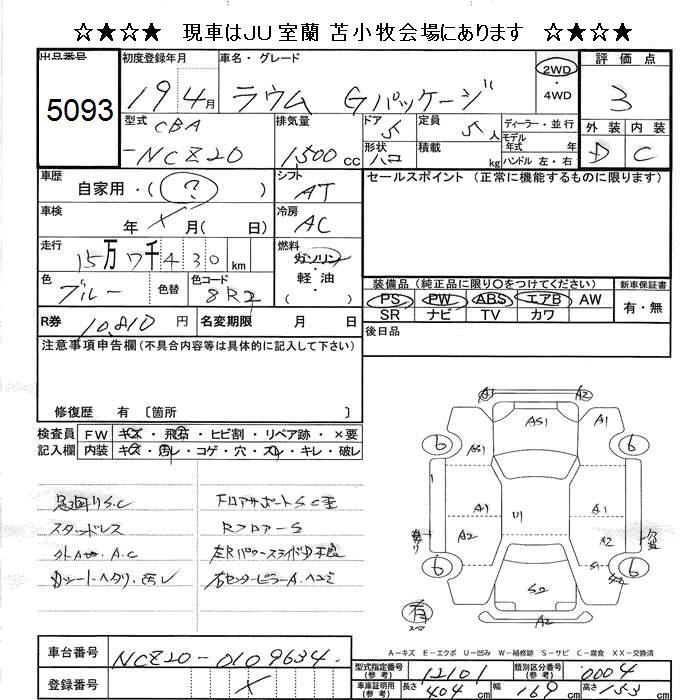 ☆★☆★ 現車はJU室蘭 苫小牧会場にあります ☆★☆★
出品番号 5093
初度登録年月 19 4月
車名・グレード ラウム Gパッケージ
2WD ・ 4WD
評価点 3
外装 内装
D C
型式 CBA
-NCZ20
排気量 1,500 cc
ドア 5
定員 5人
形状 ハコ
積載 kg
ディーラー・並行
モデル年式 年式
ハンドル 左・右
車歴 自家用・( ? )
シフト AT
車検 年 月( 日)
冷房 AC
走行 15万7千430 km
燃料 ガソリン ・ 軽油 ( )
色 ブルー
色替
色コード 8R2
R券 10,810 円
名変期限 月 日
セールスポイント (正常に機能するものに限ります)
装備品 (純正品に限り○をつけてください)
PS PW ABS エアB AW
SR ナビ TV カワ
新車保証書 有・無
後日品
注意事項申告欄(不具合内容等は具体的に記入して下さい)
修復歴 有〔箇所 〕
検査員記入欄
FW キズ・飛石・ヒビ割・リペア跡・×要
内装 キズ・汚レ・コゲ・穴・スレ・キレ・破レ
足廻りS.C
スタッドレス
A.C
シートヘタリ、汚レ
フロアサポートS.C
RフロアーS
左Rパワースライド
右センターピラーA.
A1 A2
AS1 A1
AS1
6 6
A1 A1
A2 A2
S1
6 6
S2
A2
有
スペア
A-キズ E-エクボ U-凹み W-補修跡 S-サビ C-腐食 XX-交換済
車台番号 NCZ20-0109634
登録番号
型式指定番号(参考) 12101
類別区分番号(参考) 0004
車庫証明用(参考) 長さ 404 cm 幅 169 cm 高さ 153 cm